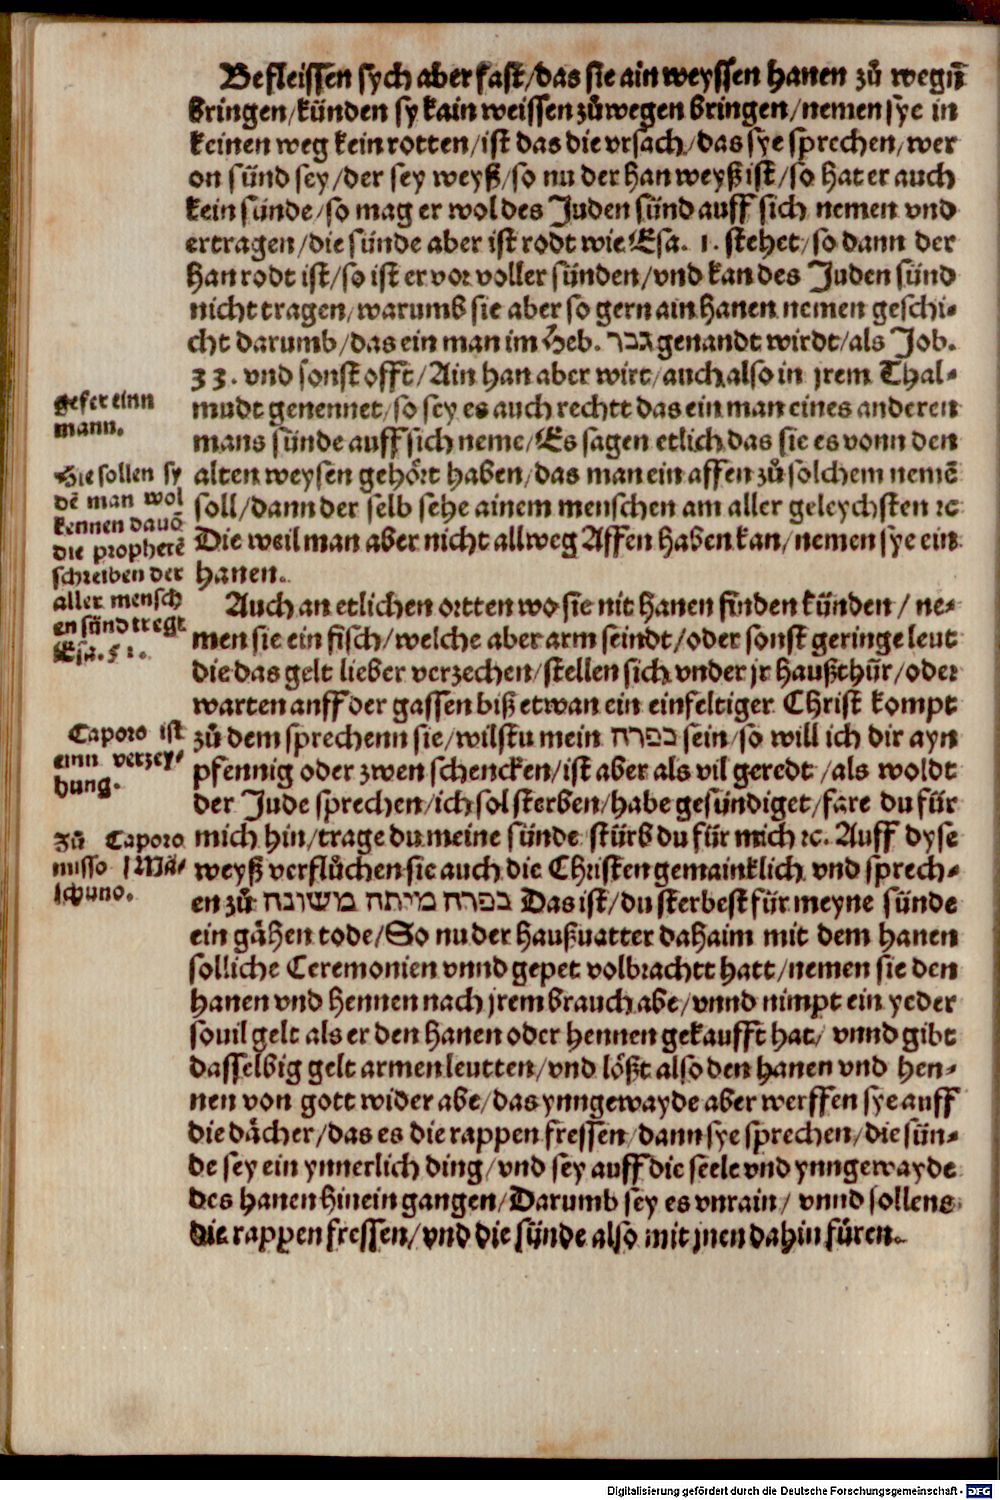 Befleissen sych aber fast/das sie ain weyssen hanen zů wegñ
bringen/künden sy kain weissen zůwegen bringen/nemen sye in
keinen weg kein rotten/ist das die vrsach/das sye sprechen/wer
on sünd sey/der sey weyß/so nu der han weyß ist/so hat er auch
kein sünde/so mag er wol des Juden sünd auff sich nemen vnd
ertragen/die sünde aber ist rodt wie Esa. 1. stehet/so dann der
han rodt ist/so ist er vor voller sünden/vnd kan des Juden sünd
nicht tragen/warumb sie aber so gern ain hanen nemen geschi-
cht darumb/das ein man im Heb. גבר genandt wirdt/als Job.
33. vnd sonst offt/Ain han aber wirt/auch also in jrem Thal-
mudt genennet/so sey es auch rechtt das ein man eines anderen
mans sünde auff sich neme/Es sagen etlich das sie es vonn den
alten weysen gehört haben/das man ein affen zů solchem nemē
soll/dann der selb sehe ainem menschen am aller geleychsten ꝛc
Die weil man aber nicht allweg Affen haben kan/nemen sye ein
hanen.
gefer einn
mann.
Hie sollen sy
dē man wol
kennen dauō
die propheтē
schreiben der
aller mensch
en sünd tregt
Esa. 51.
Auch an etlichen ortten wo sie nit hanen finden künden / ne-
men sie ein fisch/welche aber arm seindt/oder sonst geringe leut
die das gelt lieber verzechen/stellen sich vnder jr haußthür/oder
warten auff der gassen biß etwan ein einfeltiger Christ kompt
zů dem sprechenn sie/wilstu mein כפרה sein/so will ich dir ayn
pfennig oder zwen schencken/ist aber als vil geredt /als woldt
der Jude sprechen/ich sol sterben/habe gesündiget/fare du für
mich hin/trage du meine sünde stürb du für mich ꝛc. Auff dyse
weyß verflůchen sie auch die Christen gemainklich vnd sprech-
en zů כפרה מיתה משונה Das ist/du sterbest für meyne sünde
ein gähen tode/So nu der haußuatter dahaim mit dem hanen
solliche Ceremonien vnnd gepet volbrachtt hatt/nemen sie den
hanen vnd hennen nach jrem brauch abe/vnnd nimpt ein yeder
souil gelt als er den hanen oder hennen gekaufft hat/ vnnd gibt
dasselbig gelt armen leutten/vnd lößt also den hanen vnd hen-
nen von gott wider abe/das ynngewayde aber werffen sye auff
die dächer/das es die rappen fressen/dann sye sprechen/die sün-
de sey ein ynnerlich ding/vnd sey auff die seele vnd ynngewayde
des hanen hinein gangen/Darumb sey es vnrain/ vnnd sollens
die rappen fressen/vnd die sünde also mit jnen dahin füren.
Caporo ist
einn verzey-
hung.
Zů Caporo
misso Mä-
schuno.
Digitalisierung gefördert durch die Deutsche Forschungsgemeinschaft - DFG